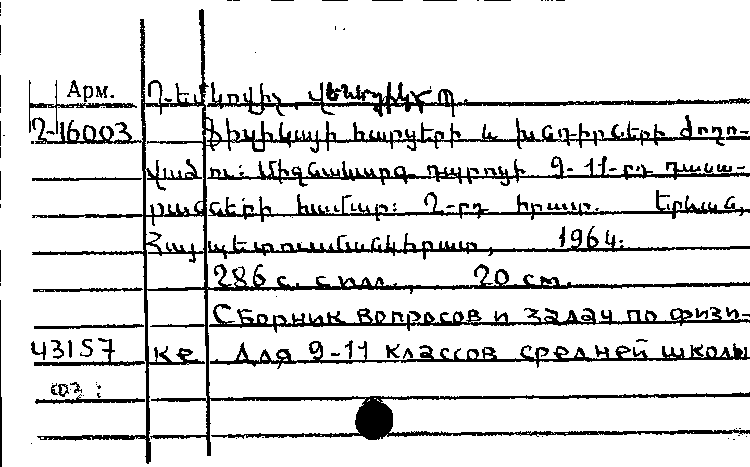 Арм. Դեմկովիչ, Վենոլիկտ Պ.
2-16003 Ֆիզիկայի հարցերի և խնդիրների ժողո-
վածու: Միջնակարգ դպրոցի 9-11-րդ դասա-
րանների համար: 2-րդ հրատ. Երևան,
Հայպետուսմանկհրատ, 1964:
286 с. с илл., 20 см.
Сборник вопросов и задач по физи-
43157 ке. Для 9-11 классов средней школы